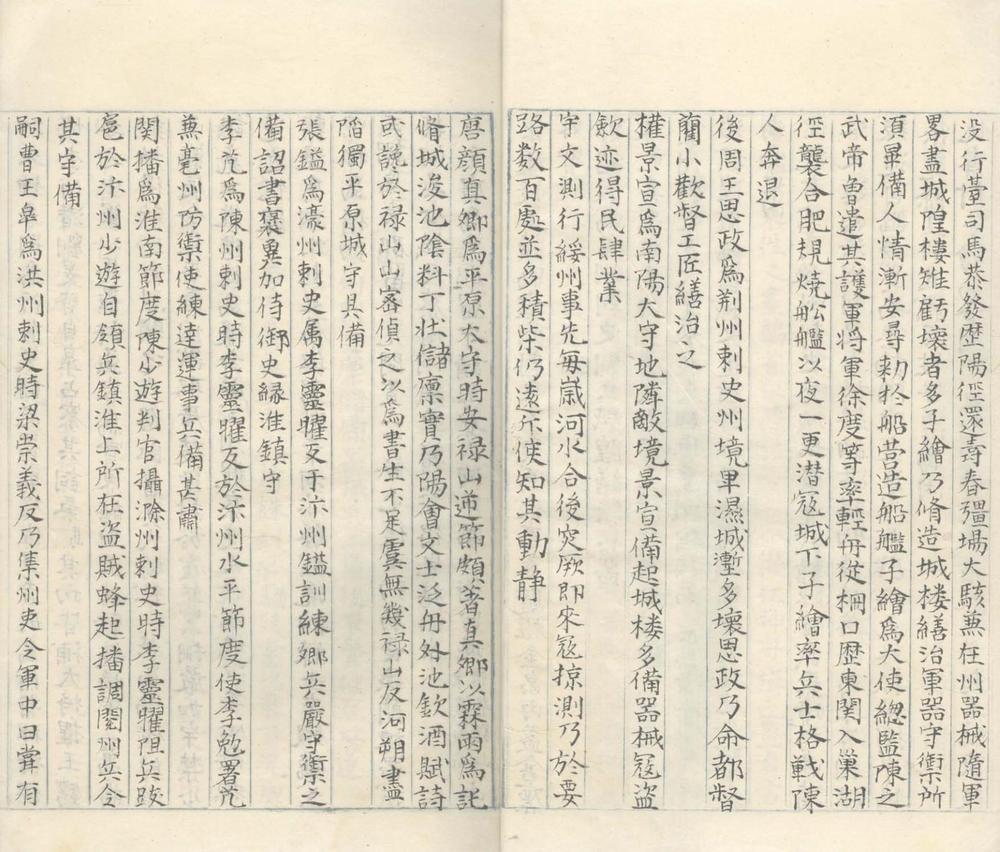 没行臺司馬恭發歷陽徑還壽春疆埸大駭兼在州器械隨軍
畧盡城隍樓雉虧壞者多子繪乃脩造城楼繕治軍器守禦所
湏畢備人情漸安尋勑於船營造船艦子繪爲大使總監陳之
武帝曾遣其護軍将軍徐度等率輕舟從柵口歷東関入巢湖
徑襲合肥規燒舩艦以夜一更潜冦城下子繪率兵士格戰陳
人奔退
後周王思政爲荆州刺史州境卑濕城壍多壞思政乃命都督
藺小歡督工匠繕治之
權景宣爲南陽大守地隣敵境景宣備起城楼多備器械冦盜
歛迹得民肆業
宇文測行綏州事先每歲河水合後突厥即來冦掠測乃於要
路数百處並多積柴仍遠斥使知其動静
唐顔真卿爲平原太守時安禄山逆節頗著真卿以霖雨爲託
脩城浚池隂料丁壮儲廪實乃陽會文士泛舟外池飲酒賦詩
或讒於禄山山審偵之以爲書生不足虞無幾禄山反河朔盡
陷獨平原城守具備
張鎰爲濠州刺史属李靈曜反于汴州鎰訓練郷兵嚴守禦之
備詔書褒異加侍御史縁淮鎮守
李芃爲陳州刺史時李靈曜反於汴州水平節度使李勉署芃
兼亳州防禦使練達運事兵備甚肅
関播爲淮南節度陳少遊判官攝滁州刺史時李靈曜阻兵跋
扈於汴州少遊自領兵鎮淮上所在盗賊蜂起播調閱州兵令
其守備
嗣曹王皐爲洪州刺史時梁崇義反乃集州吏令軍中曰甞有